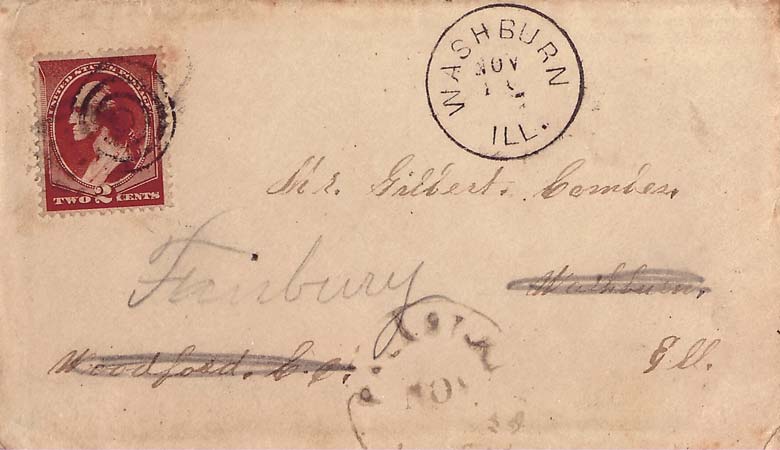 UNITED STATES POSTAGE
TWO 2 CENTS
WASHBURN
NOV
ILL.
Mr. Gilbert. Comies.
Fairbury
Washburn.
Woodford. Co.
Ill.
NOV